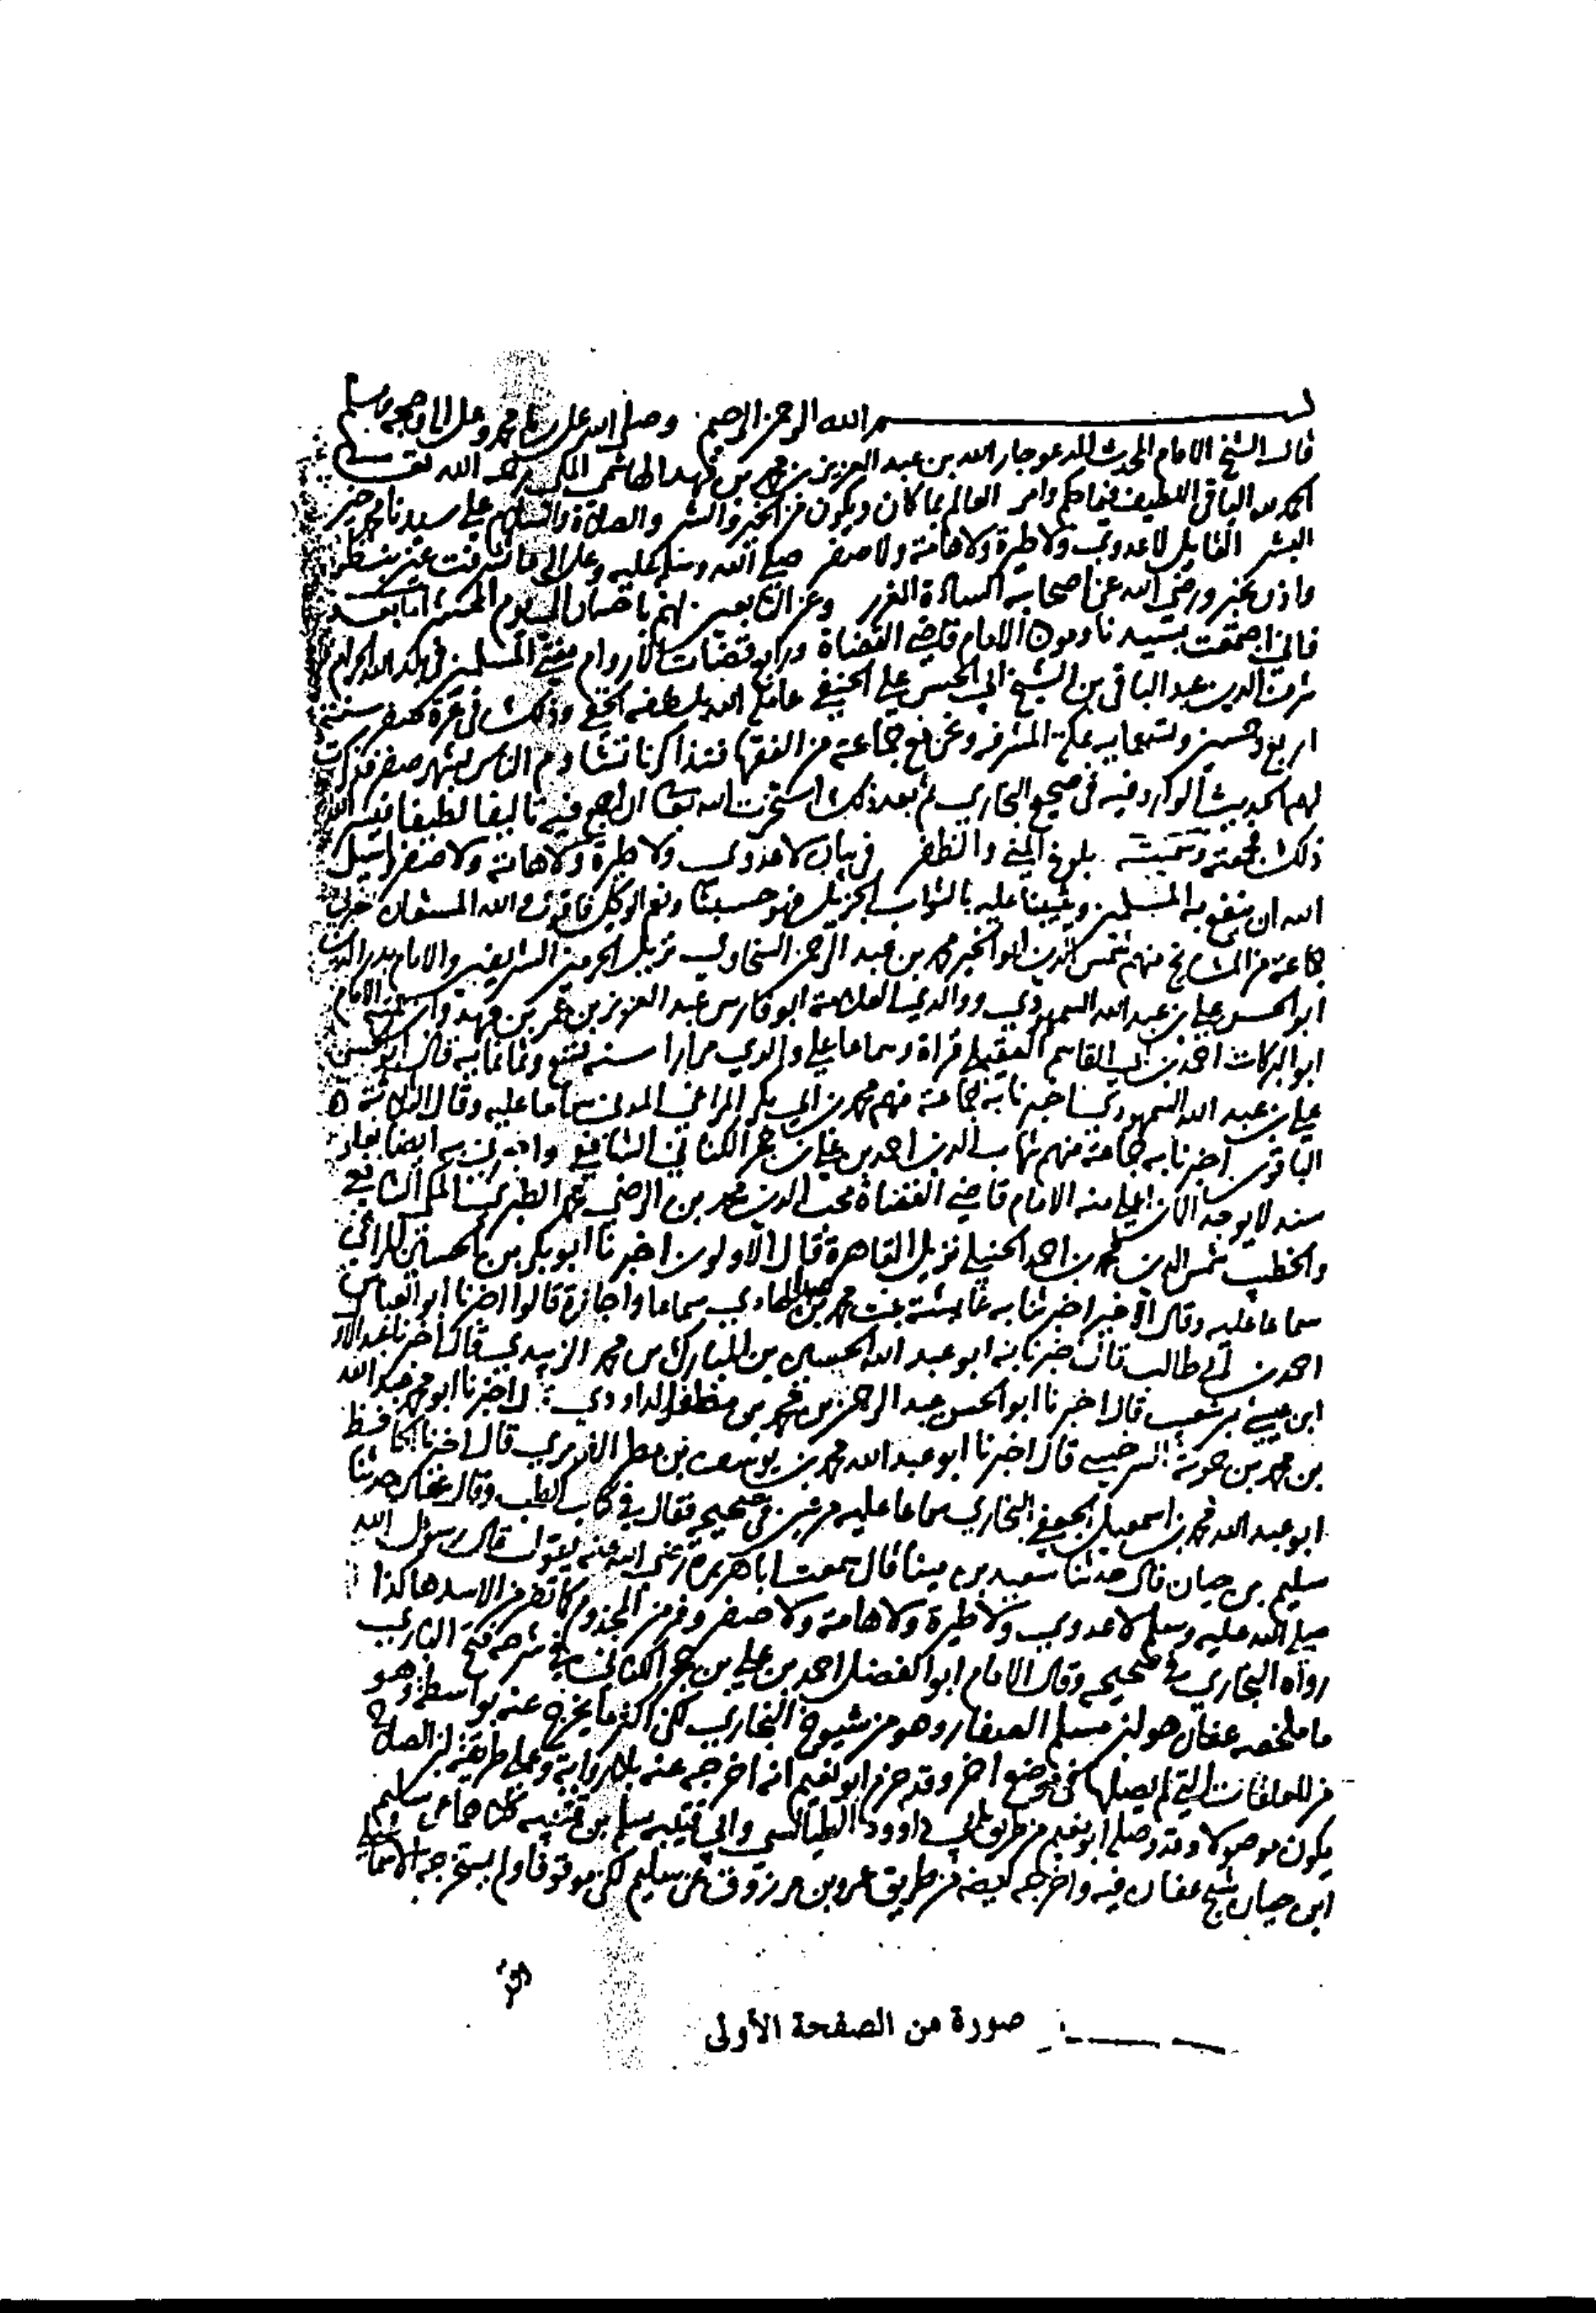 بسم الله الرحمن الرحيم وصلى الله على سيدنا محمد وعلى اله وصحبه وسلم
قال الشيخ الامام المحدث المدعو جار الله بن عبد العزيز بن محمد بن فهد الهاشمي المكي رحمه الله تعالى
الحمد لله الباقي اللطيف فيما حكم وامر العالم بما كان ويكون من الخير والشر والصلاة والسلام على سيدنا محمد خير
البشر القايل لا عدوى ولا طيرة ولا هامة ولا صفر صلى الله وسلم عليه وعلى اله ما شرفت عين بنظر
واذن بخبر ورضي الله عن اصحابه السادة الغرر وعن التابعين لهم باحسان الى يوم المحشر اما بعد
فاني اجتمعت بسيدنا ومولانا الامام قاضي القضاة ورابع قضات الاروام مفتي المسلمين في بلد الله الحرام
شرف الدين عبد الباقي بن الشيخ ابي الحسن علي الحنفي عامله الله بلطفه الخفي وذلك في غرة صفر سنة
اربع وخمسين وتسعمايه بمكة المشرفه ونحن مع جماعة من الفقها فتذاكرنا تشاوم الناس بشهر صفر فذكرت
لهم الحديث الوارد فيه في صحيح البخاري ثم بعد ذلك استخرت الله تعالى ان اجمع فيه تاليفا لطيفا فيسر الله
ذلك فجمعته وسميته بلوغ المنى والظفر في بيان لا عدوى ولا طيرة ولا هامة ولا صفر اسيل
الله ان ينفع به المسلمين ويثيبنا عليه بالثواب الجزيل فهو حسبنا ونعم الوكيل فاقول والله المستعان اخبرني
جماعة من المشايخ منهم شمس الدين ابو الخير محمد بن عبد الرحمن السخاوي نزيل الحرمين الشريفين والامام بدر الدين
ابو الحسن علي بن عبد الله السمهودي ووالدي العلامة ابو فارس عبد العزيز بن عمر بن فهد والامام
ابو البركات احمد بن ابي القاسم العقيلي قراة وسماعا على والدي مرارا سنه تسع وثمانمايه قال ابو الحسن
علي بن عبد الله السمهودي اخبرنا به جماعة منهم محمد بن ابي بكر المراغي المدني سماعا عليه وقال الثلاثة
الباقون اخبرنا به جماعة منهم شهاب الدين احمد بن علي بن حجر الكناني الشافعي واخبرني به ايضا بعلو
سند لا يوجد الان اعلى منه الامام قاضي القضاة محب الدين محمد بن الرضي محمد الطبري المكي الشافعي
والخطيب شمس الدين محمد بن احمد الحنبلي نزيل القاهرة قال الاولون اخبرنا ابو بكر بن الحسين المراغي
سماعا عليه وقال الاخير اخبرتنا به عايشة بنت محمد بن عبد الهادي سماعا واجازة قالوا اخبرنا ابو العباس
احمد بن ابي طالب قال اخبرنا به ابو عبد الله الحسين بن المبارك بن محمد الزبيدي قال اخبرنا عبد الاول
ابن عيسى بن شعيب قال اخبرنا ابو الحسن عبد الرحمن بن محمد بن مظفر الداودي قال اخبرنا ابو محمد عبد الله
بن محمد بن حموية السرخسي قال اخبرنا ابو عبد الله محمد بن يوسف بن مطر الفربري قال اخبرنا الحافظ
ابو عبد الله محمد بن اسمعيل الجعفي البخاري سماعا عليه مرتين في صحيحه فقال في كتاب الطب وقال عفان حدثنا
سليم بن حيان قال حدثنا سعيد بن مينا قال سمعت ابا هريرة رضي الله عنه يقول قال رسول الله
صلى الله عليه وسلم لا عدوى ولا طيرة ولا هامة ولا صفر وفر من المجذوم كما تفر من الاسد هاكذا
رواه البخاري في صحيحه وقال الامام ابو الفضل احمد بن علي بن حجر الكناني في شرحه فتح الباري
ما ملخصه عفان هو ابن مسلم الصفار وهو من شيوخ البخاري لكن اكثر ما يخرج عنه بواسطة وهو
من المعلقات التي لم يصلها في موضع اخر وقد جزم ابو نعيم انه اخرجه عنه بلا رواية وعلى طريقة ابن الصلاح
يكون موصولا وقد وصله ابو نعيم من طريق ابي داوود الطيالسي وابي قتيبه سلم بن قتيبه كلاهما عن سليم
ابن حيان شيخ عفان فيه واخرجه ايضا من طريق عمرو بن مرزوق عن سليم لكن موقوفا ولم يستخرجه الاسماعيلي
صورة من الصفحة الأولى